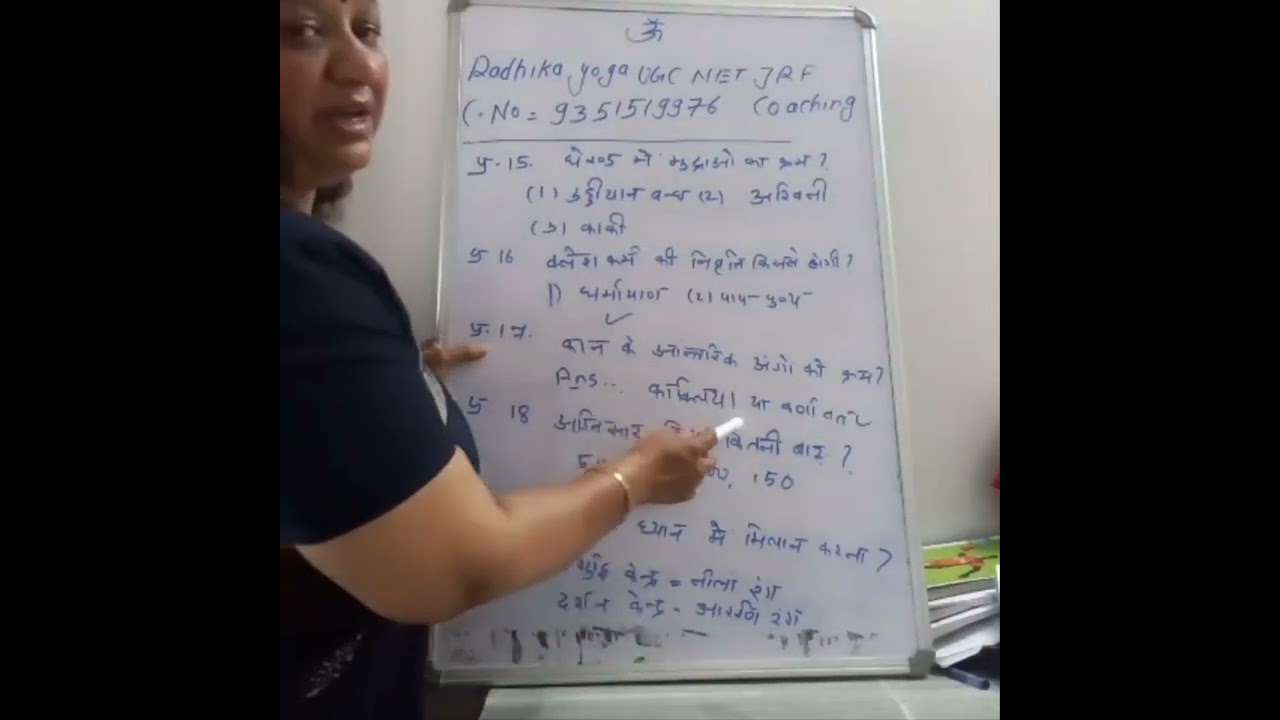 ॐ
Radhika yoga UGC NET JRF
C.No = 9351519976 Coaching
प्र.15. घेरण्ड में मुद्राओ का क्रम?
(1) उड्डीयान बन्ध (2) अश्विनी
(3) काकी
प्र 16 क्लेश कर्म की निवृत्ति किससे होगी?
1) (2) पाप-पुण्य
प्र.17. कान के आन्तरिक अंगो को क्रम?
Ans... या
प्र 18 अग्निसार कितनी बार?
150
ध्यान में मिलान करना?
केन्द्र = नीला रंग
दर्शन केन्द्र - रंग